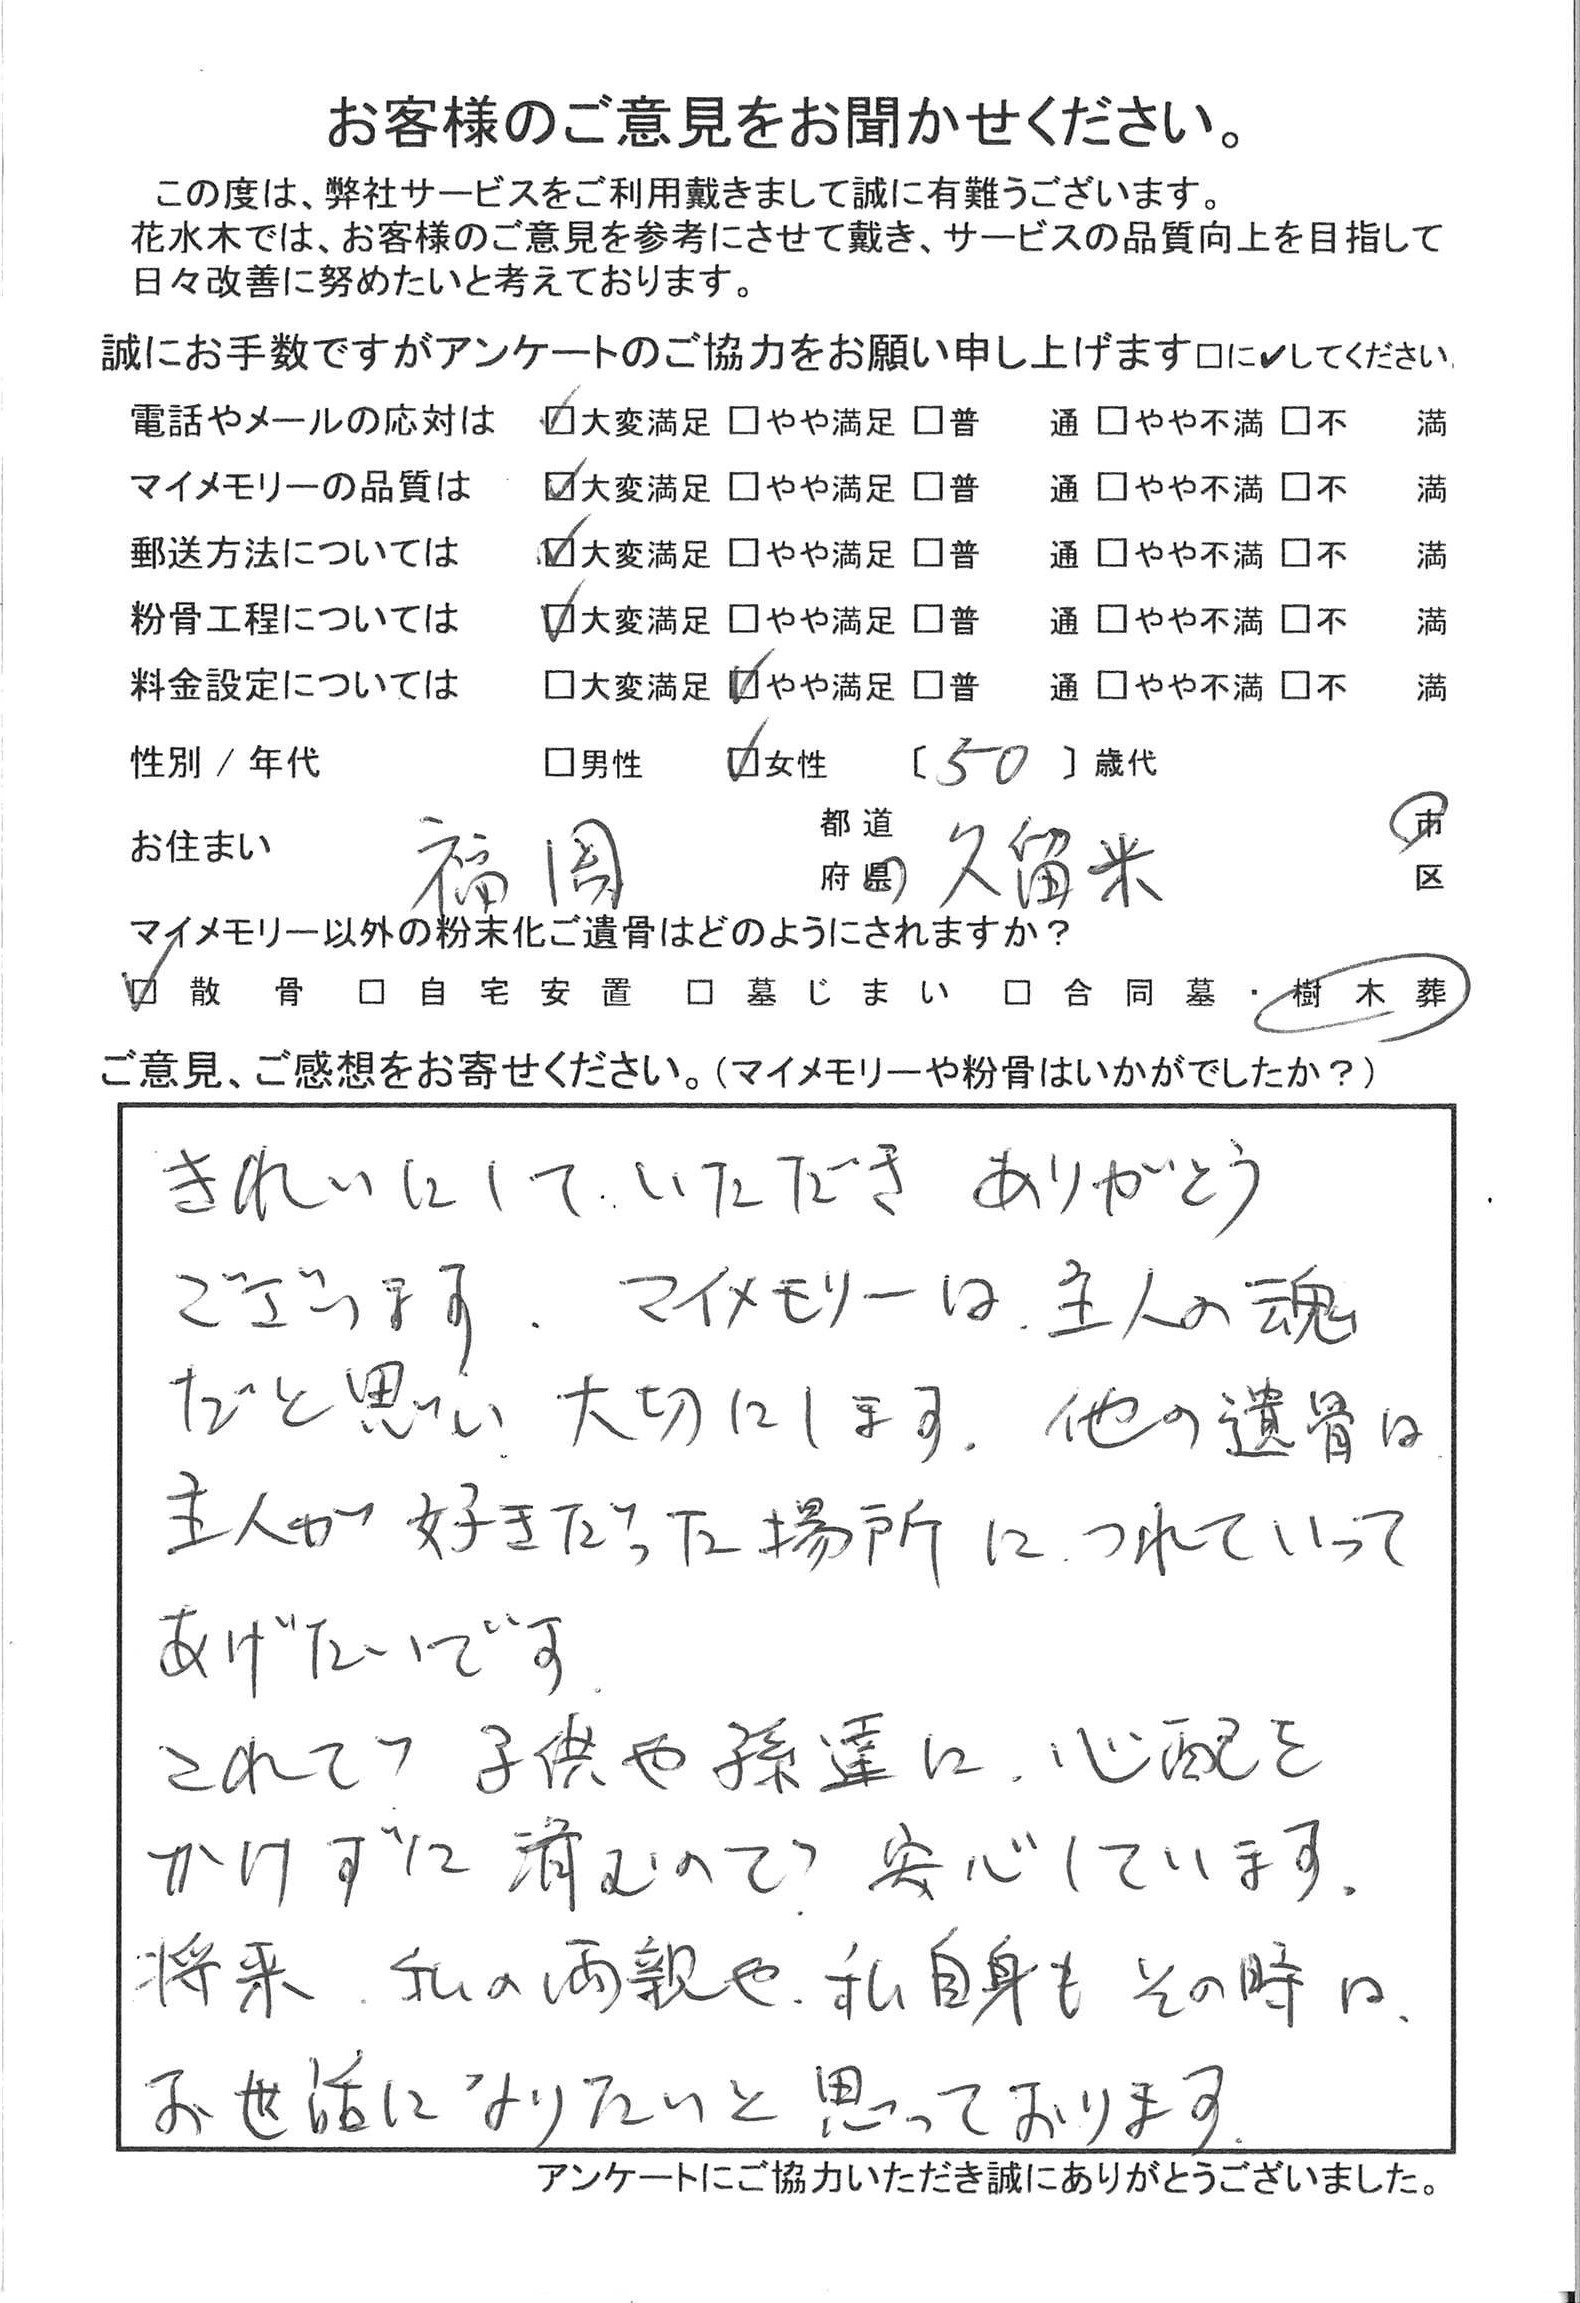 お客様のご意見をお聞かせください。
この度は、弊社サービスをご利用戴きまして誠に有難うございます。
花水木では、お客様のご意見を参考にさせて戴き、サービスの品質向上を目指して
日々改善に努めたいと考えております。
誠にお手数ですがアンケートのご協力をお願い申し上げます□に✔してください。
電話やメールの応対は ☑大変満足 □やや満足 □普 通 □やや不満 □不 満
マイメモリーの品質は ☑大変満足 □やや満足 □普 通 □やや不満 □不 満
郵送方法については ☑大変満足 □やや満足 □普 通 □やや不満 □不 満
粉骨工程については ☑大変満足 □やや満足 □普 通 □やや不満 □不 満
料金設定については □大変満足 ☑やや満足 □普 通 □やや不満 □不 満
性別 / 年代 □男性 ☑女性 〔 50 〕歳代
お住まい 福岡 都道府県 久留米 市区
マイメモリー以外の粉末化ご遺骨はどのようにされますか？
☑ 散骨 □ 自宅安置 □ 墓じまい □ 合同墓・樹木葬
ご意見、ご感想をお寄せください。（マイメモリーや粉骨はいかがでしたか？）
きれいにして、いただき ありがとう
ございます。 マイメモリーは、主人の魂
だと思い、大切にします。 他の遺骨は
主人が 好きだった場所に、つれていって
あげたいです。
これで 子供や孫達に、心配を
かけずに 済むので、安心しています。
将来、私の両親や、私自身も その時は、
お世話になりたいと 思っております。
アンケートにご協力いただき誠にありがとうございました。